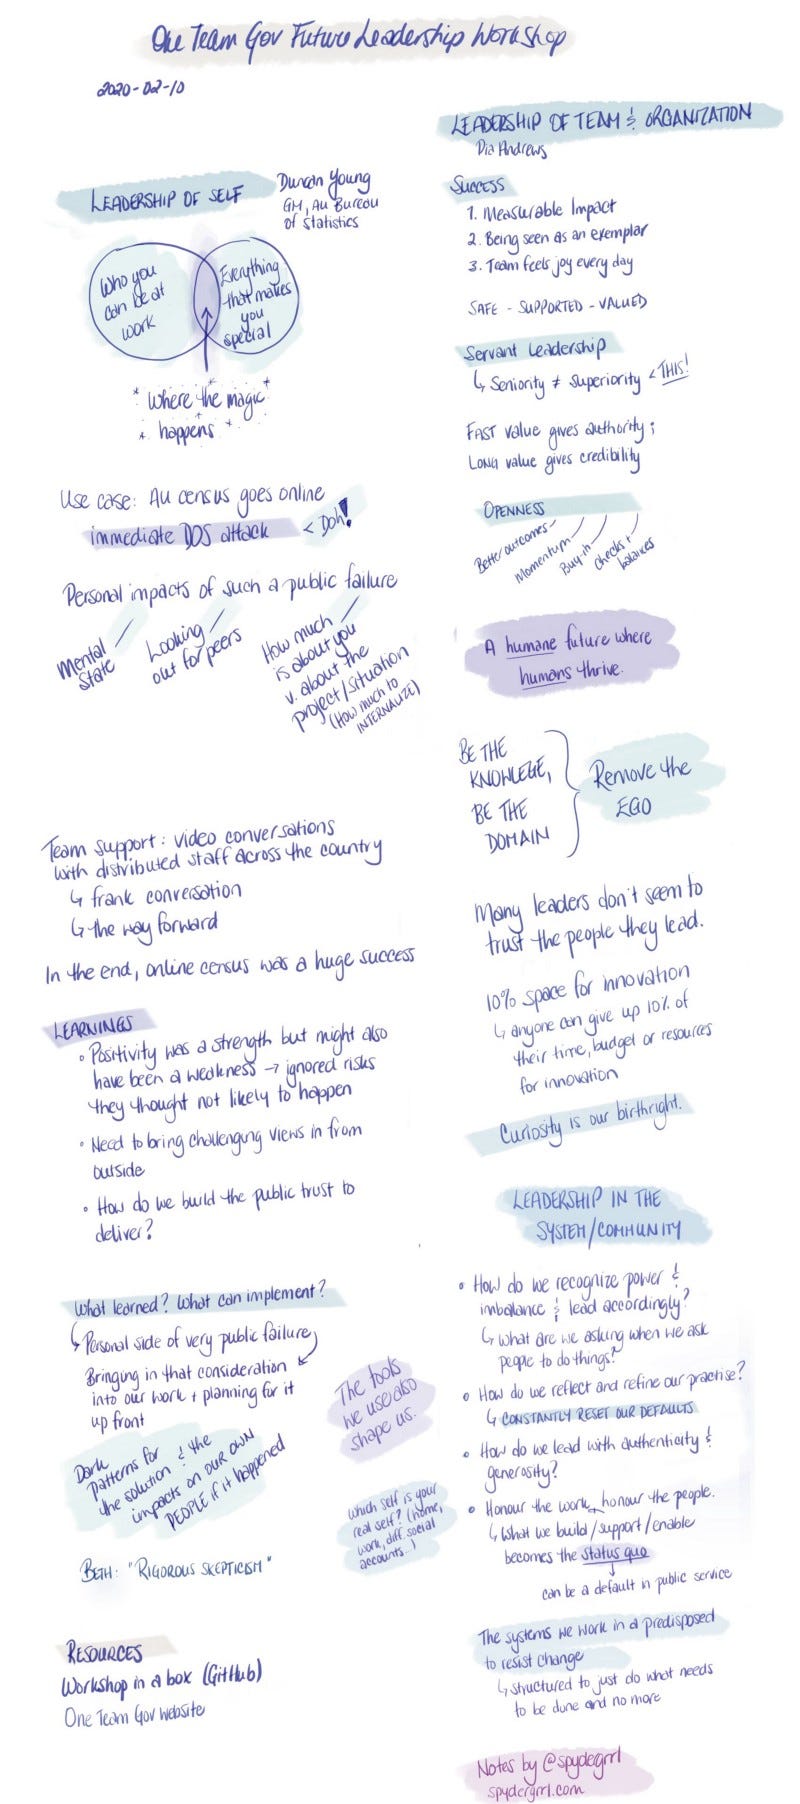 One Team Gov Future Leadership Workshop
2020-02-10
LEADERSHIP OF SELF
Duncan Young
GM, Au Bureau
of Statistics
Who you
can be at
work
Everything
that makes
you
special
Where the magic
happens
Use case: Au census goes online
immediate DOS attack < Doh!
Personal impacts of such a public failure
Mental
State
Looking
out for peers
How much
is about you
v. about the
project/situation
(How much to
INTERNALIZE)
Team support: video conversations
with distributed staff across the country
↳ frank conversation
↳ the way forward
In the end, online census was a huge success
LEARNINGS
◦ Positivity was a strength but might also
have been a weakness → ignored risks
they thought not likely to happen
◦ Need to bring challenging views in from
outside
◦ How do we build the public trust to
deliver?
What learned? What can implement?
↳ Personal side of very public failure
Bringing in that consideration
into our work + planning for it
up front
Dark
patterns for
the solution & the
impacts on OUR OWN
PEOPLE if it happened
The tools
we use also
shape us.
Which self is your
real self? (home,
work, diff. social
accounts...)
BETH: "RIGOROUS SKEPTICISM"
RESOURCES
Workshop in a box (GitHub)
One Team Gov website
LEADERSHIP OF TEAM & ORGANIZATION
Pia Andrews
SUCCESS
1. Measurable Impact
2. Being seen as an exemplar
3. Team feels joy every day
SAFE - SUPPORTED - VALUED
Servant Leadership
↳ Seniority ≠ Superiority < THIS!
FAST value gives authority;
LONG value gives credibility
OPENNESS
Better outcomes
Momentum
Buy-in
Checks +
balances
A humane future where
humans thrive.
BE THE
KNOWLEGE,
BE THE
DOMAIN
Remove the
EGO
Many leaders don't seem to
trust the people they lead.
10% space for innovation
↳ anyone can give up 10% of
their time, budget or resources
for innovation
Curiosity is our birthright.
LEADERSHIP IN THE
SYSTEM/COMMUNITY
◦ How do we recognize power &
imbalance & lead accordingly?
↳ What are we asking when we ask
people to do things?
◦ How do we reflect and refine our practise?
↳ CONSTANTLY RESET OUR DEFAULTS
◦ How do we lead with authenticity &
generosity?
◦ Honour the work, honour the people.
↳ What we build/support/enable
becomes the status quo
can be a default in public service
The systems we work in a predisposed
to resist change
↳ structured to just do what needs
to be done and no more
Notes by @spydergrrl
spydergrrl.com